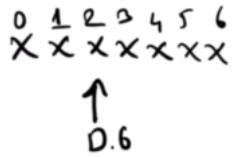 0 1 2 3 4 5 6
x x x x x x x
D.6